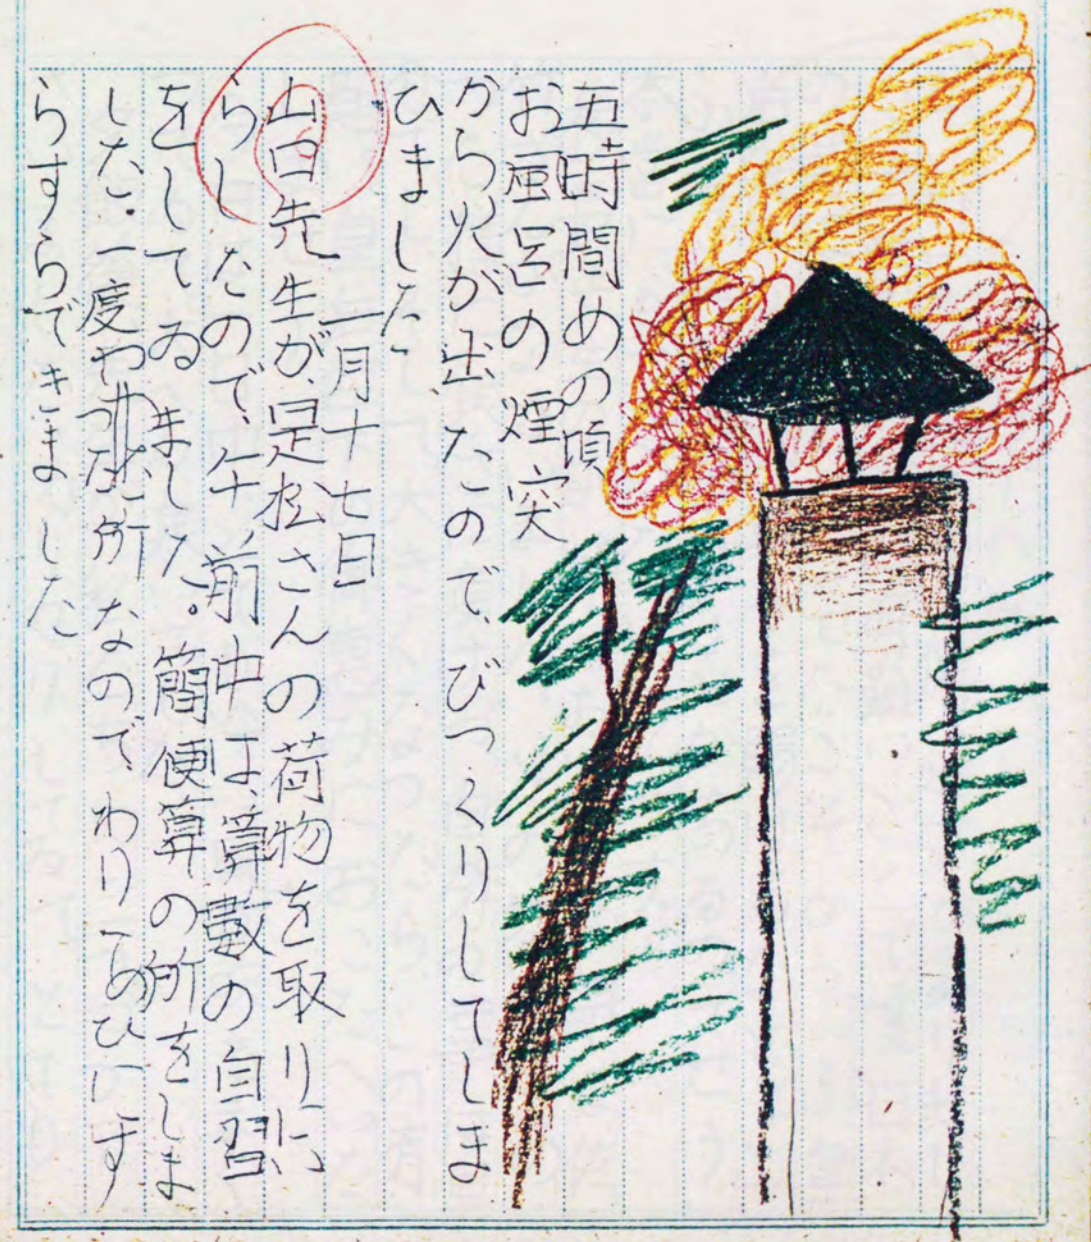 五時間めの頃
お風呂の煙突
から火が出たので、びつくりしてしま
ひました
一月十七日
山口先生が、是松さんの荷物を取りに
らしたので、午前中は、算數の自習
をしてゐました。簡便算の所をしま
した。一度やつた所なので、わりあひにす
らすらできました